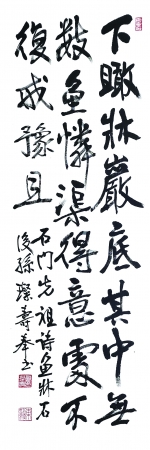 下瞰牀巖底其中無
數魚憐渠得意處不
復戒豫且
石門先祖詩魚牀石
後孫燦壽奉书